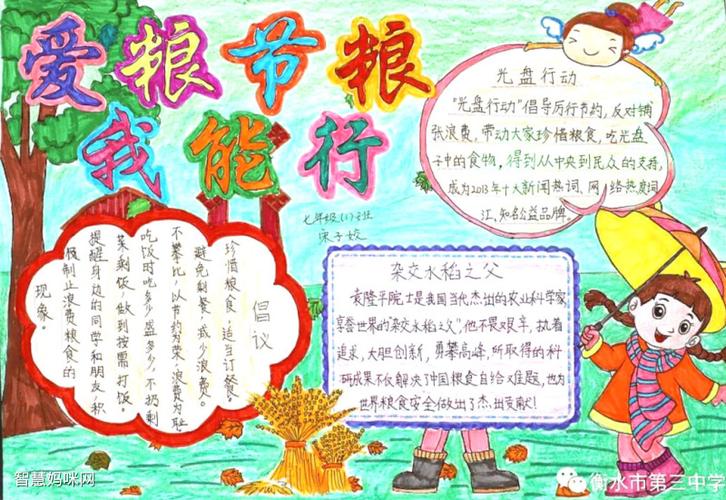 爱粮节粮
我能行
七年级(1)班
宋子姣
光盘行动
"光盘行动"倡导厉行节约,反对铺
张浪费,带动大家珍惜粮食、吃光盘
子中的食物,得到从中央到民众的支持,
成为2013年十大新闻热词、网络热度词
汇、知名公益品牌。
倡议
珍惜粮食,适当订餐
避免剩餐,减少浪费。
不攀比,以节约为荣,浪费为耻
吃饭时吃多少盛多少,不扔剩
菜剩饭,做到按需打饭。
提醒身边的同学和朋友,积
极制止浪费粮食的
现象。
杂交水稻之父
袁隆平院士是我国当代杰出的农业科学家,
享誉世界的"杂交水稻之父",他不畏艰辛,执着
追求,大胆创新,勇攀高峰,所取得的科
研成果不仅解决了中国粮食自给难题,也为
世界粮食安全做出了杰出贡献!
智慧妈咪网
衡水市第三中学